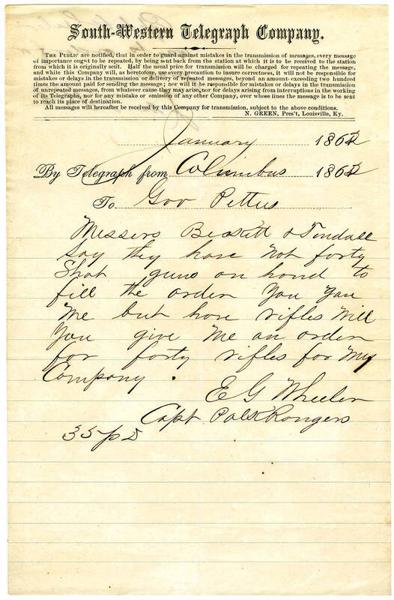 South-Western Telegraph Company.
The Public are notified, that in order to guard against mistakes in the transmission of messages, every message
of importance ought to be repeated, by being sent back from the station at which it is to be received to the station
from which it is originally sent. Half the usual price for transmission will be charged for repeating the message,
and while this Company will, as heretofore, use every precaution to insure correctness, it will not be responsible for
mistakes or delays in the transmission or delivery of repeated messages, beyond an amount exceeding two hundred
times the amount paid for sending the message; nor will it be responsible for mistakes or delays in the transmission
of unrepeated messages, from whatever cause they may arise, nor for delays arising from interruptions in the working
of its Telegraphs, nor for any mistake or omission of any other Company, over whose lines the message is to be sent
to reach its place of destination.
All messages will hereafter be received by this Company for transmission, subject to the above conditions.
N. GREEN, Pres't, Louisville, Ky.
January 1862
By Telegraph from Columbus 1862
To Gov Pettus
Messers & Tindall
Say they have not forty
Shot guns on hand to
fill the order You
Me but have rifles Will
You give Me an order
for forty rifles for My
Company.
E G Wheeler
Capt Rangers
35